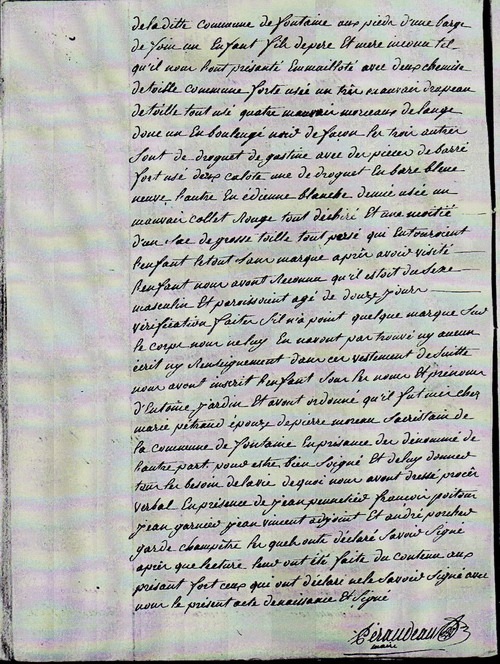 de la ditte commune de fontaine aux pieds d'une barge
de foin un Enfant fils de pere Et mere inconu tel
qu'il nous l'ont présenté Emmailloté avec deux chemise
de toille commune forte usée un très mauvais drapeau
de toille tout usé quatre mauvais morceaux de lange
donc un En boulengé noir de facon les trois autres
sont de droguet de gastine avec des pieces de barré
fort usé deux calote une de droguet En barre bleue
neuve l'autre En édienne blanche demie usée un
mauvais collet Rouge tout déchiré Et une moitiée
d'un sac de grosse toille tout persé qui Entouroient
l'enfant le tout sans marque après avoir visité
l'enfant nous avons Reconnu qu'il estoit du sexe
masculin Et paroissoint agé de douze jours
vérification faites s'il n'a point quelque marque sur
le corps nous ne luy En navons pas trouvé ny aucun
écrit ny Renseignement dans ces vestement de suitte
nous avons inscrit l'enfant sous les noms Et prénoms
d'Entoine jardin Et avons ordonné qu'il fut mis chez
marie petraud épouze de pierre moreau sacristain de
la commune de fontaine En présance des dénommé de
l'autre part pour estre bien soigné Et de luy donner
tous les besoin de la vie de quoi nous avons dressé procés
verbal En présence de jean françois poitou
jean garnier jean vincent adjoint Et andré porcher
garde champêtre les quels onts déclaré savoir signé
après que lecture leur ont été faite du contenu aux
présant fort ceux qui ont déclaré ne le savoir signé avec
nous le présent acte de naissance Et signé
Péraudeau
maire